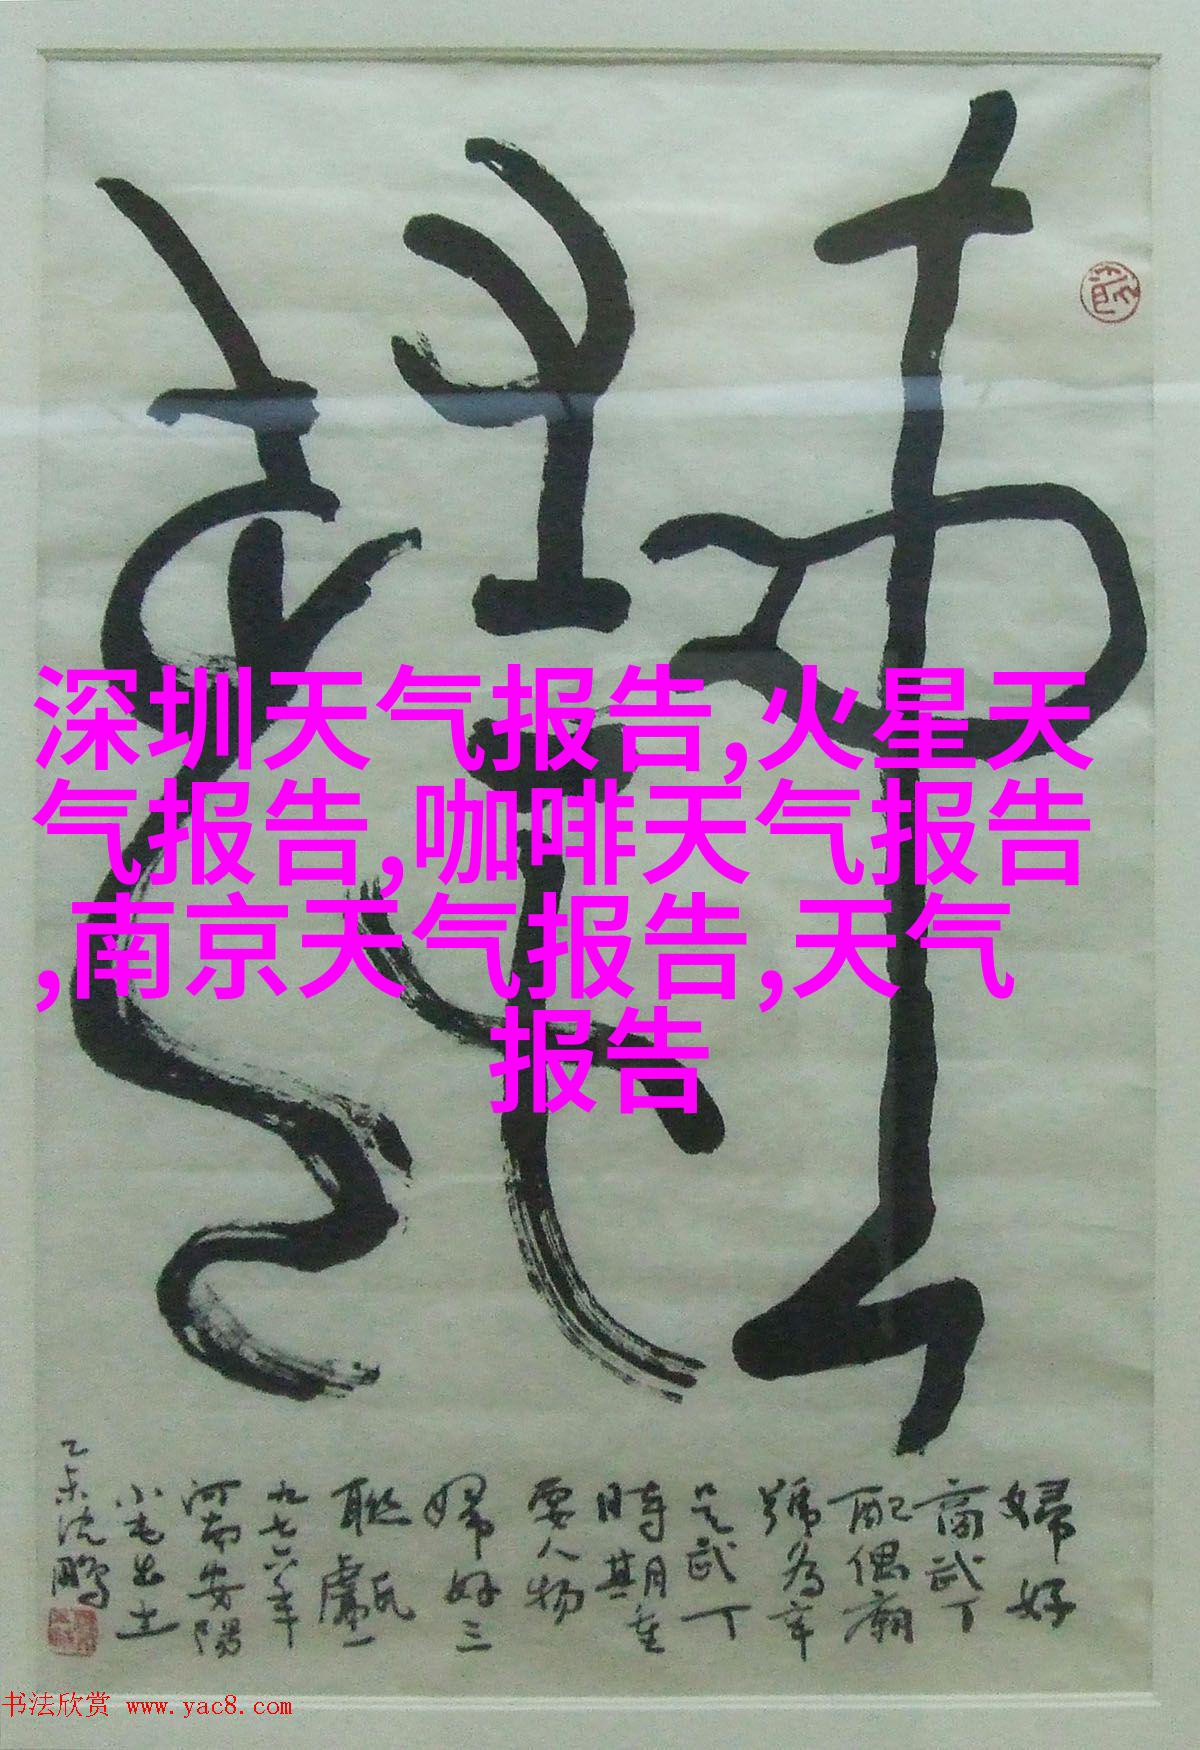 深圳天气报告,火星天
气报告,咖啡天气报告
,南京天气报告,天气
报告
婦好
商武丁
配偶廟
號为辛
是武丁
時期重
要人物
婦好三
聯甗一
九七六年
河南安陽
小屯出土
乙未沈鹏
书法欣赏 www.yac8.com